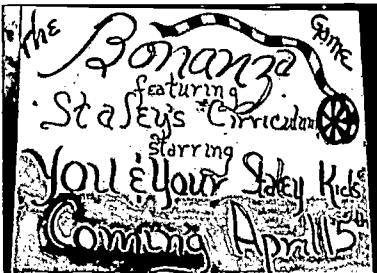 the Bonanza Game
featuring
Staley's Cirriculum
starring
You & Your Staley Kids
Coming April 15th